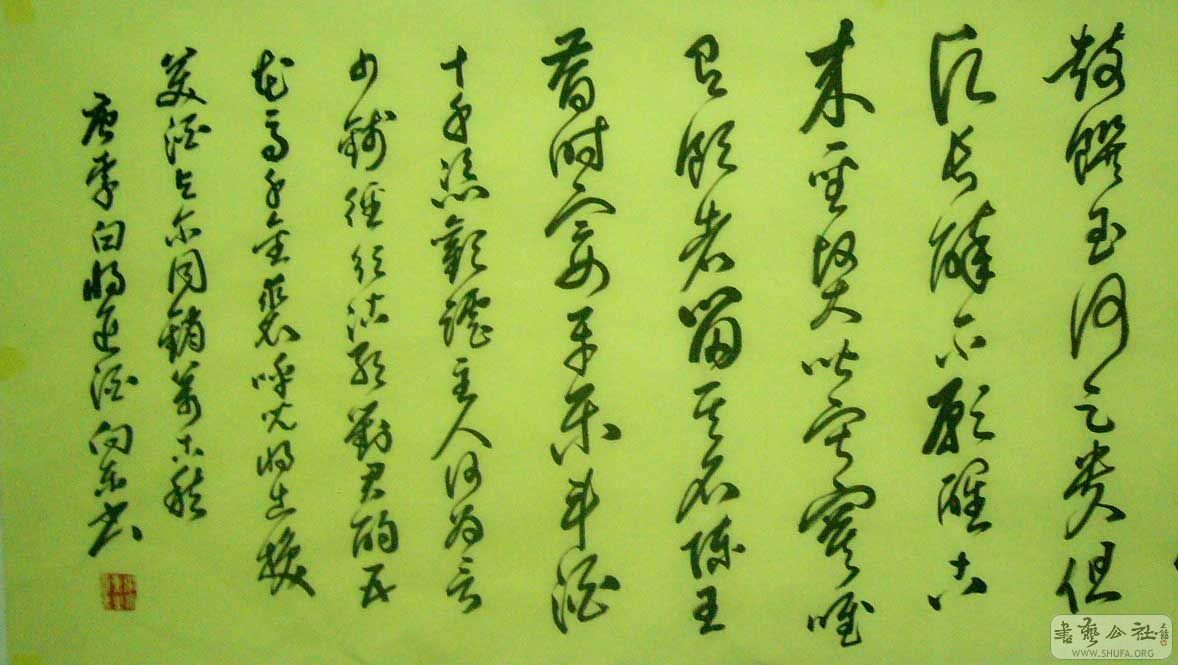 鼓饌玉何足贵但
愿长醉不愿醒古
来聖贤皆寂寞唯
有飲者留其名陳王
昔时宴平乐斗酒
十千恣歡謔主人何为言
少錢徑须沽取對君酌五
花马千金裘呼儿将出換
美酒与尔同銷萬古愁
唐李白将进酒向东书
書藝公社
WWW.SHUFA.ORG